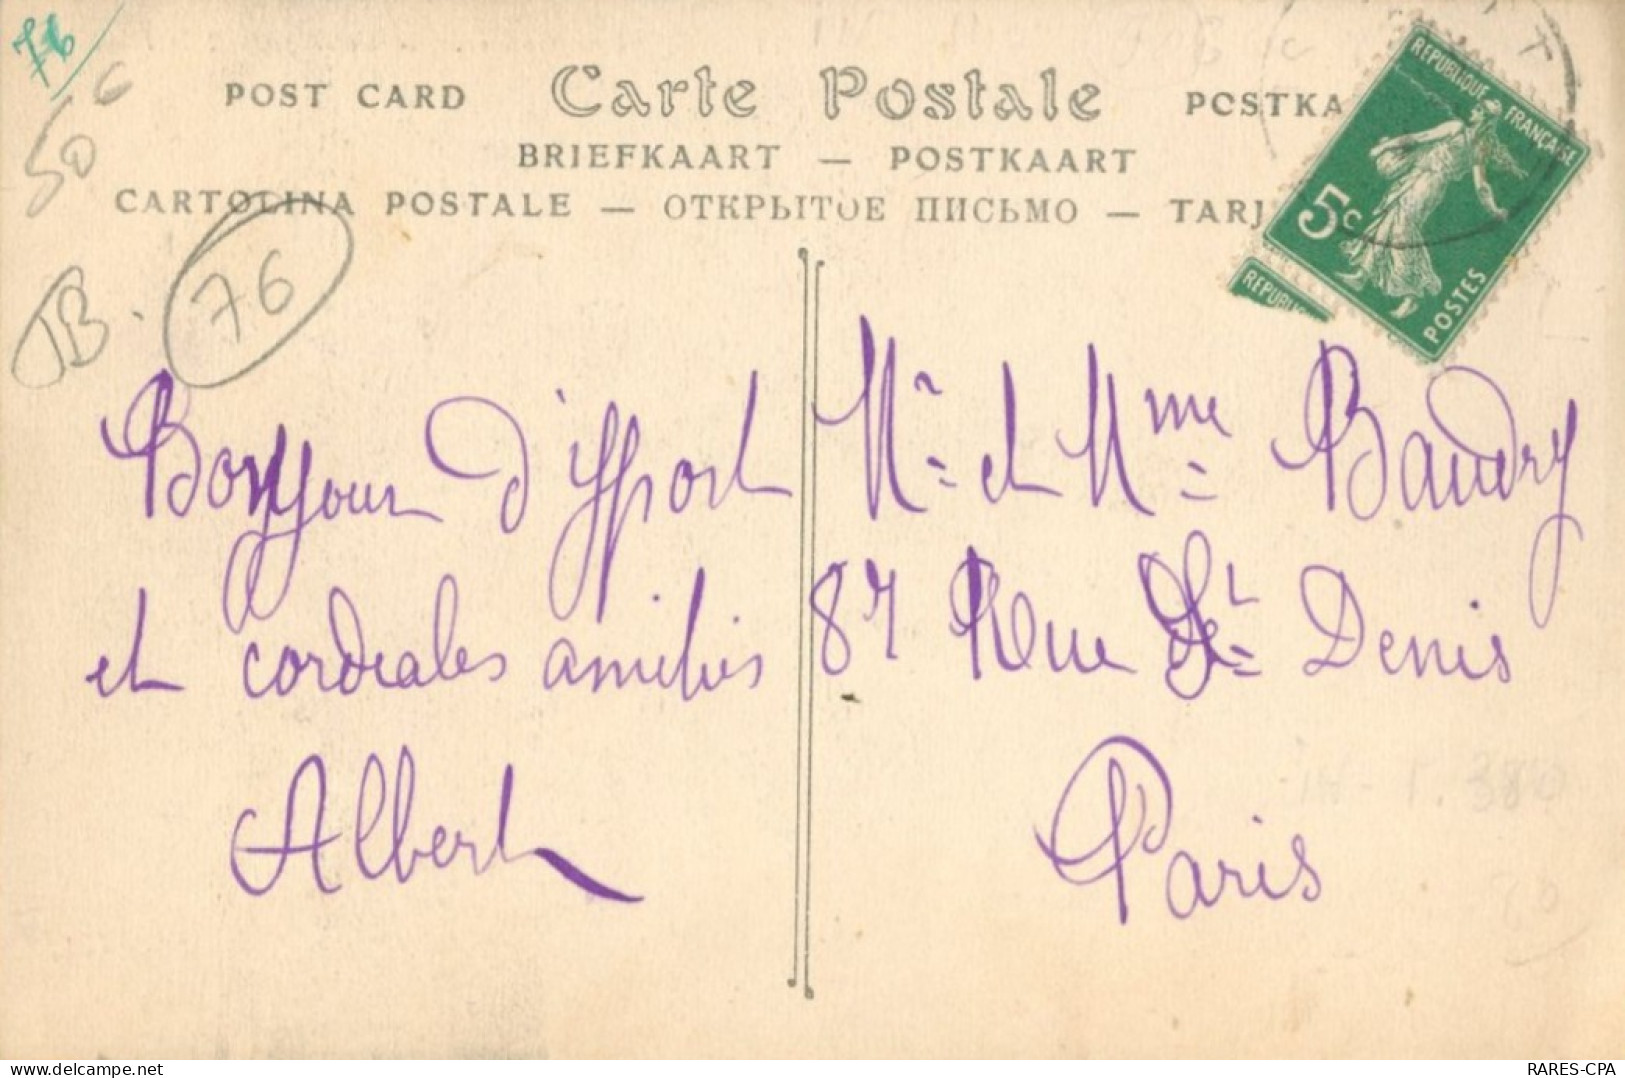 76
50 c
POST CARD Carte Postale POSTKA
BRIEFKAART — POSTKAART
CARTOLINA POSTALE — ОТКРЫТОЕ ПИСЬМО — TARJ
REPUBLIQUE FRANÇAISE
5c
POSTES
REPUBLI
TB. 76
Bonjour d'yport
et cordiales amitiés
Albert
Mr et Mme Baudry
87 Rue St Denis
Paris
380
20
delcampe.net
RARES-CPA